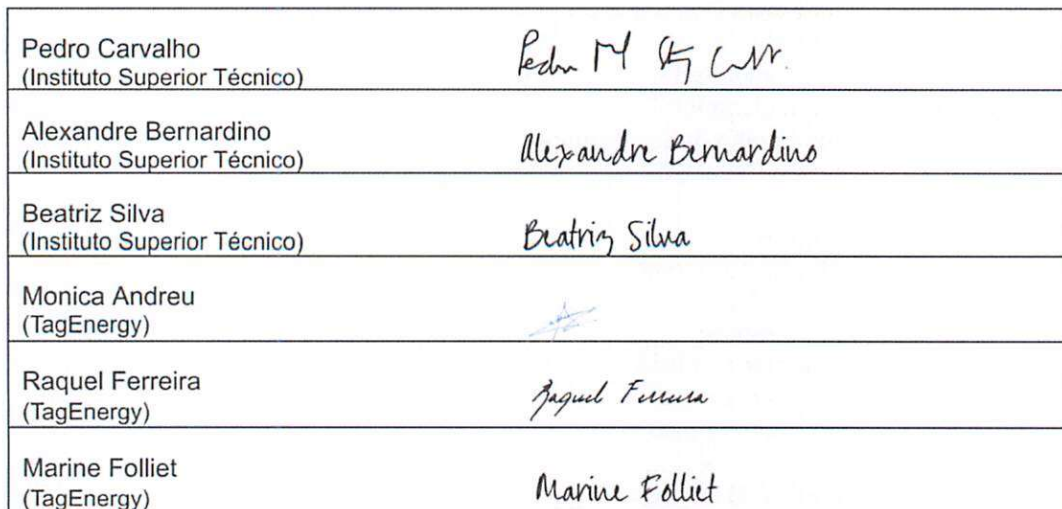 Pedro Carvalho
(Instituto Superior Técnico)
Pedro M
Alexandre Bernardino
(Instituto Superior Técnico)
Alexandre Bernardino
Beatriz Silva
(Instituto Superior Técnico)
Beatriz Silva
Monica Andreu
(TagEnergy)
Raquel Ferreira
(TagEnergy)
Raquel Ferreira
Marine Folliet
(TagEnergy)
Marine Folliet